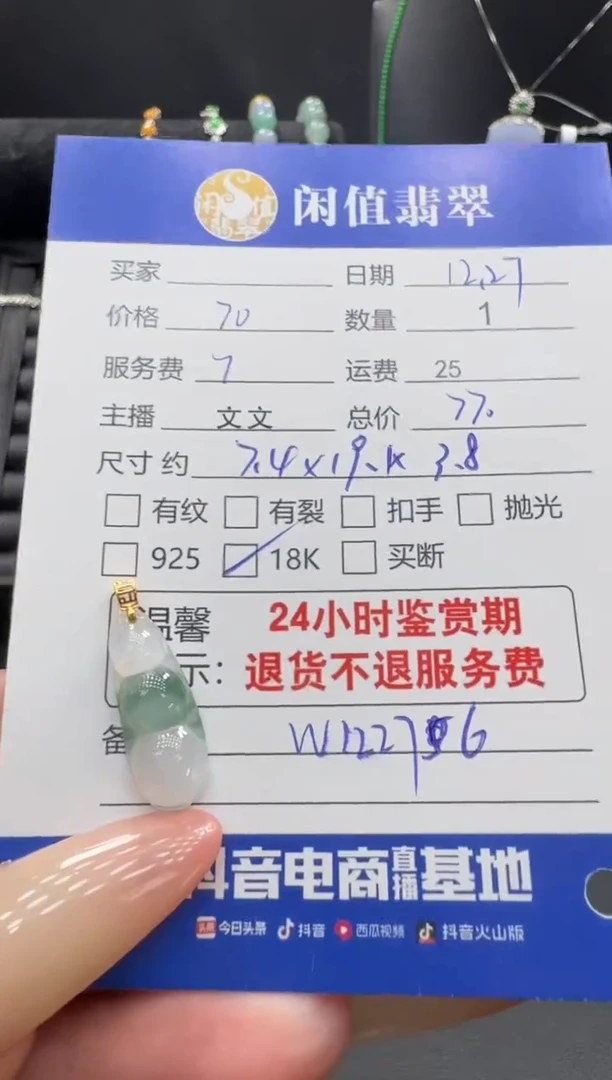 闲值翡翠
闲值翡翠
买家 日期 12.27
价格 70 数量 1
服务费 7 运费 25
主播 文文 总价 77.
尺寸约 7.4x19.1x 3.8
有纹 有裂 扣手 抛光
925 18K 买断
温馨 24小时鉴赏期
示: 退货不退服务费
备 W1227 6
抖音电商直播基地
头条 今日头条 抖音 西瓜视频 抖音火山版